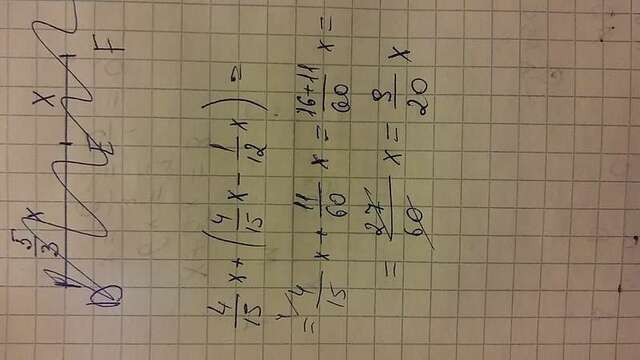 5/3 x x
D E F
4/15 x + (4/15 x - 1/12 x) =
= 4/15 x + 11/60 x = 16+11/60 x =
= 27/60 x = 9/20 x